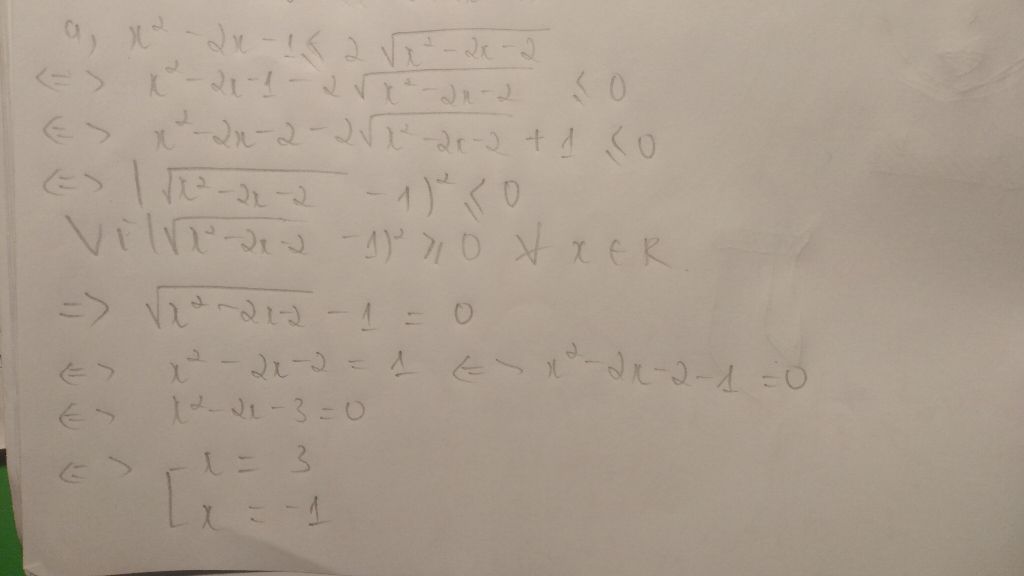 a, x² - 2x - 1 ≤ 2 √(x² - 2x - 2)
<=> x² - 2x - 1 - 2√(x² - 2x - 2) ≤ 0
<=> x² - 2x - 2 - 2√(x² - 2x - 2) + 1 ≤ 0
<=> (√(x² - 2x - 2) - 1)² ≤ 0
Vì (√(x² - 2x - 2) - 1)² ≥ 0 ∀ x ∈ R.
=> √(x² - 2x - 2) - 1 = 0
<=> x² - 2x - 2 = 1 <=> x² - 2x - 2 - 1 = 0
<=> x² - 2x - 3 = 0
<=> [ x = 3
x = -1